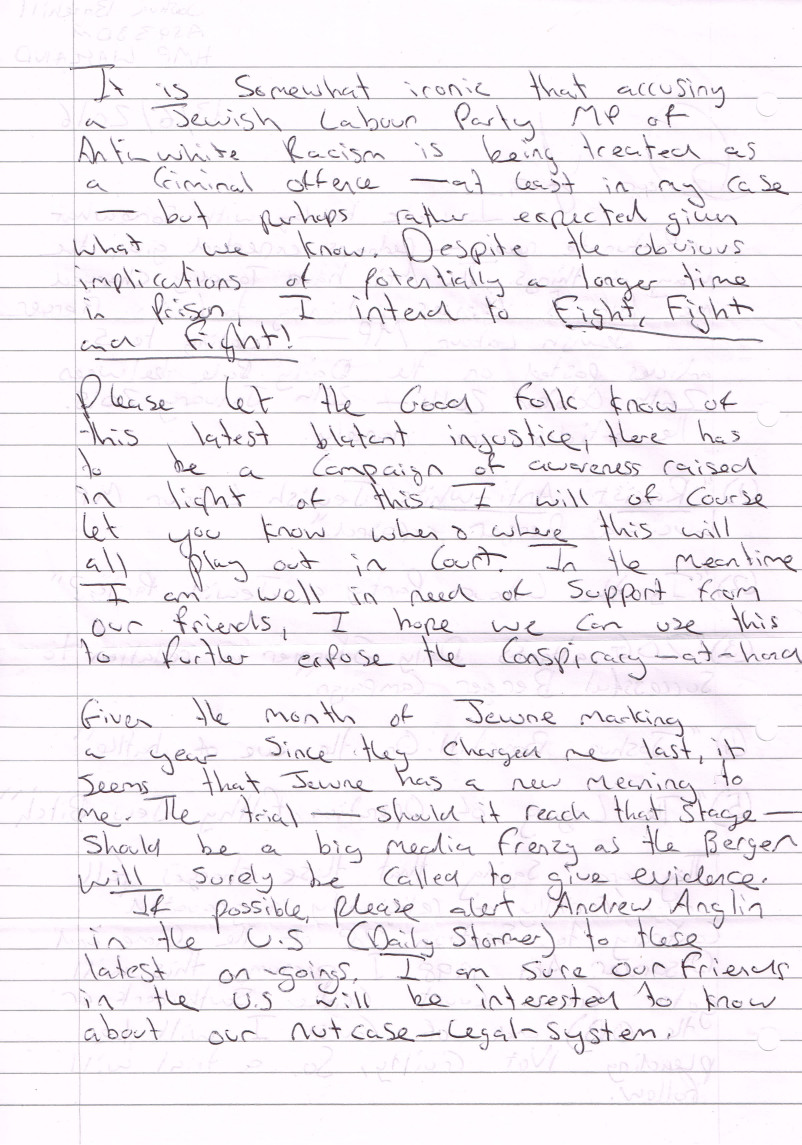 It is Somewhat ironic that accusing
a Jewish Labour Party MP of
Anti-white Racism is being treated as
a Criminal offence — at least in my case
— but perhaps rather expected given
what we know. Despite the obvious
implications of potentially a longer time
in Prison, I intend to Fight, Fight
and Fight!
Please let the Good folk know of
this latest blatant injustice, there has
to be a Campaign of awareness raised
in light of this. I will of Course
let you know when & where this will
all play out in Court. In the meantime
I am well in need of Support from
our friends, I hope we can use this
to further expose the Conspiracy-at-hand
Given the month of Jewne marking
a year Since they Charged me last, it
Seems that Jewne has a new meaning to
me. The trial — should it reach that Stage —
Should be a big media frenzy as the Berger
will Surely be Called to give evidence.
If possible, please alert Andrew Anglin
in the U.S (Daily Stormer) to these
latest on-goings. I am sure our friends
in the U.S will be interested to know
about our nutcase-Legal-System.